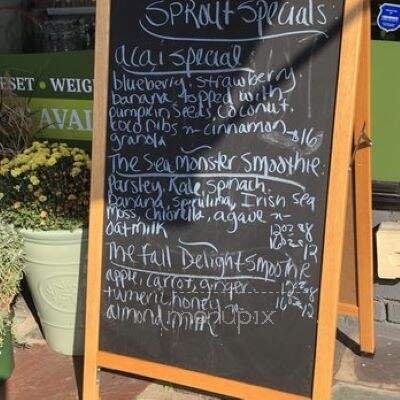 Sprout Specials:
acai special
blueberry, strawberry,
banana topped with
pumpkin seeds, coconut,
coco nibs n cinnamon $16
granola
The Sea Monster Smoothie:
Parsley, Kale, Spinach,
banana, spirulina, Irish Sea
moss, chlorella, agave n
oatmilk 12oz 8
The Fall Delight Smoothie
apple, carrot, ginger, 12oz 8
tumeric, honey n 16oz 12
almond milk
menupix
ESET • WEIG
AVAI